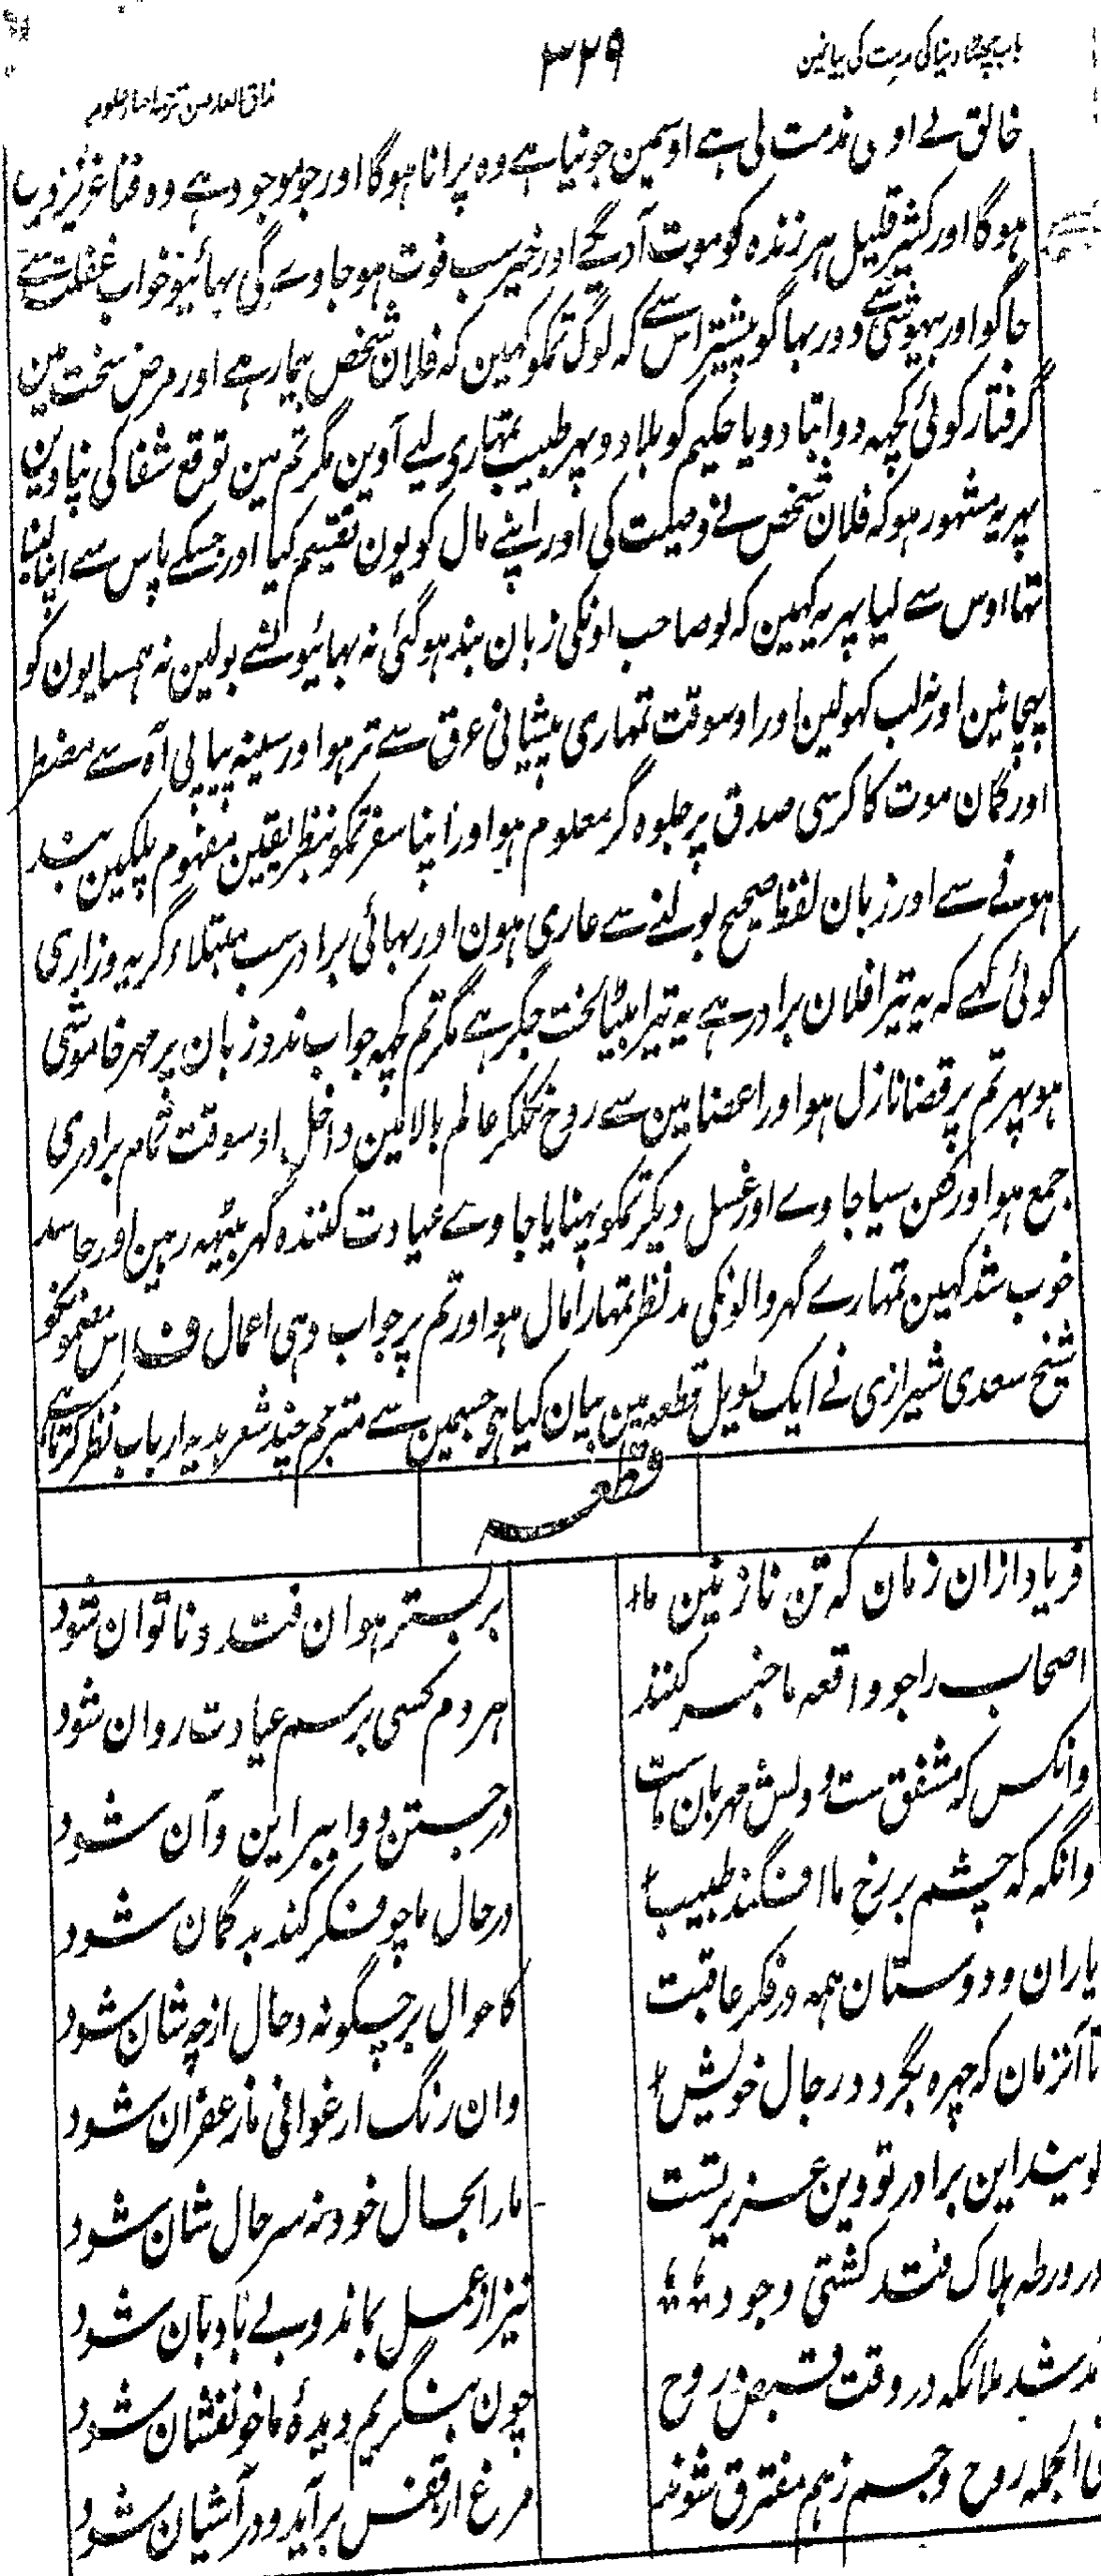 باب چھٹا دنیا کی مذمت کی بیانمین
۳۲۹
مذاق العارفین ترجمہ احیاء علوم
خالق نے اوسکی مذمت کی ہے اوسمین جو نیا ہے وہ پرانا ہوگا اور جو موجود ہے وہ فنا عزیز
ہوگا اور کثیر قلیل ہر زندہ کو موت آدیگی اور خیر سب فوت ہو جاوے گی بہائیو خواب غفلت سے
جاگو اور بیہوشی سے دور بہاگو پیشتر اس سے کہ لوگ تمکو کہین کہ فلان شخص بیمار ہے اور مرض سخت مین
گرفتار کوئی کچہہ دوا بتا دو یا حکیم کو بلا دو پہر طبیب تمہاری لیے آوین مگر تم مین توقع شفا کی نپاوین
پہر یہ مشہور ہو کہ فلان شخص نے وصیت کی اور اپنے مال کو یون تقسیم کیا اور جسکے پاس سے اپنا لینا
تہا اوس سے لیا پہر یہ کہین کہ لو صاحب اونکی زبان بند ہوگئی نہ بہائیو نسے بولین نہ ہمسایون کو
پہچانین اور نہ لب کہولین اور اوسوقت تمہاری پیشانی عرق سے تر ہو اور سینہ پیاپی آہ سے مضطر
اور گمان موت کا کرسی صدق پر جلوہ گر معلوم ہو اور اپنا سفر تمکو بنظر یقین مفہوم پلکین بند
ہونے سے اور زبان لفظ صحیح بولنے سے عاری ہون اور بہائی برادر سب مبتلاء گریہ و زاری
کوئی کہے کہ یہ تیرا فلان برادر ہے یہ تیرا بیٹا لخت جگر ہے مگر تم کچہہ جواب ندو زبان پر مہر خاموشی
ہو پہر تم پر قضا نازل ہو اور اعضا مین سے روح نکلکر عالم بالا مین داخل اوسوقت تمام برادری
جمع ہو اور کفن سیا جاوے اور غسل دیکر تمکو پہنایا جاوے عیادت کنندہ گہر بیٹہہ رہین اور حاسد
خوب شد کہین تمہارے گہر والونکی مد نظر تمہارا مال ہو اور تم پر جواب دہی اعمال ف اس مضمونکو
شیخ سعدی شیرازی نے ایک طویل قطعہ مین بیان کیا ہی جسمین سے مترجم چند شعر ہدیہ ارباب نظر کرتا ہے
قطعہ
فریاد ازان زمان کہ تن نازنین ما بر بستر ہوان فتد و ناتوان شود
اصحاب را چو واقعہ ما خبر کنند ہر دم کسی برسم عیادت روان شود
وانکس کہ مشفق ست و دلش مہربان ماست در جستن دوا ببر این و آن شود
وانگہ کہ چشم بر رخ ما افگند طبیب در حال ما چو فکر کند بدگمان شود
یاران و دوستان ہمہ در فکر عاقبت کاحوال بر چگونہ و حال از چہ شان شود
تا آنزمان کہ چہرہ بگردد در حال خویش وان رنگ ارغوانی ما زعفران شود
گویند این برادر تو وین عزیز تست مارا بحال خود نہ سر حال شان شود
در ورطہ ہلاک فتد کشتی وجود نیز از عمل بماند و بے بادبان شود
آمد شد ملائکہ در وقت قبض روح چون بنگریم دیدۂ ما خونفشان شود
فی الجملہ روح و جسم زہم مفترق شوند مرغ از قفس برآید و در آشیان شود